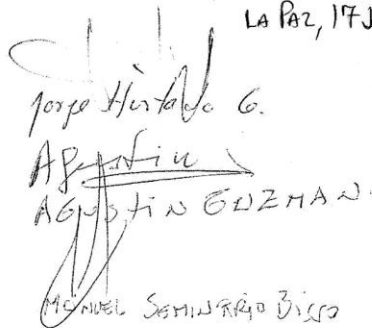 LA PAZ, 17J
Jorge Hurtado G.
Agustin
AGUSTIN GUZMAN.
MANUEL SEMINARIO BISSO